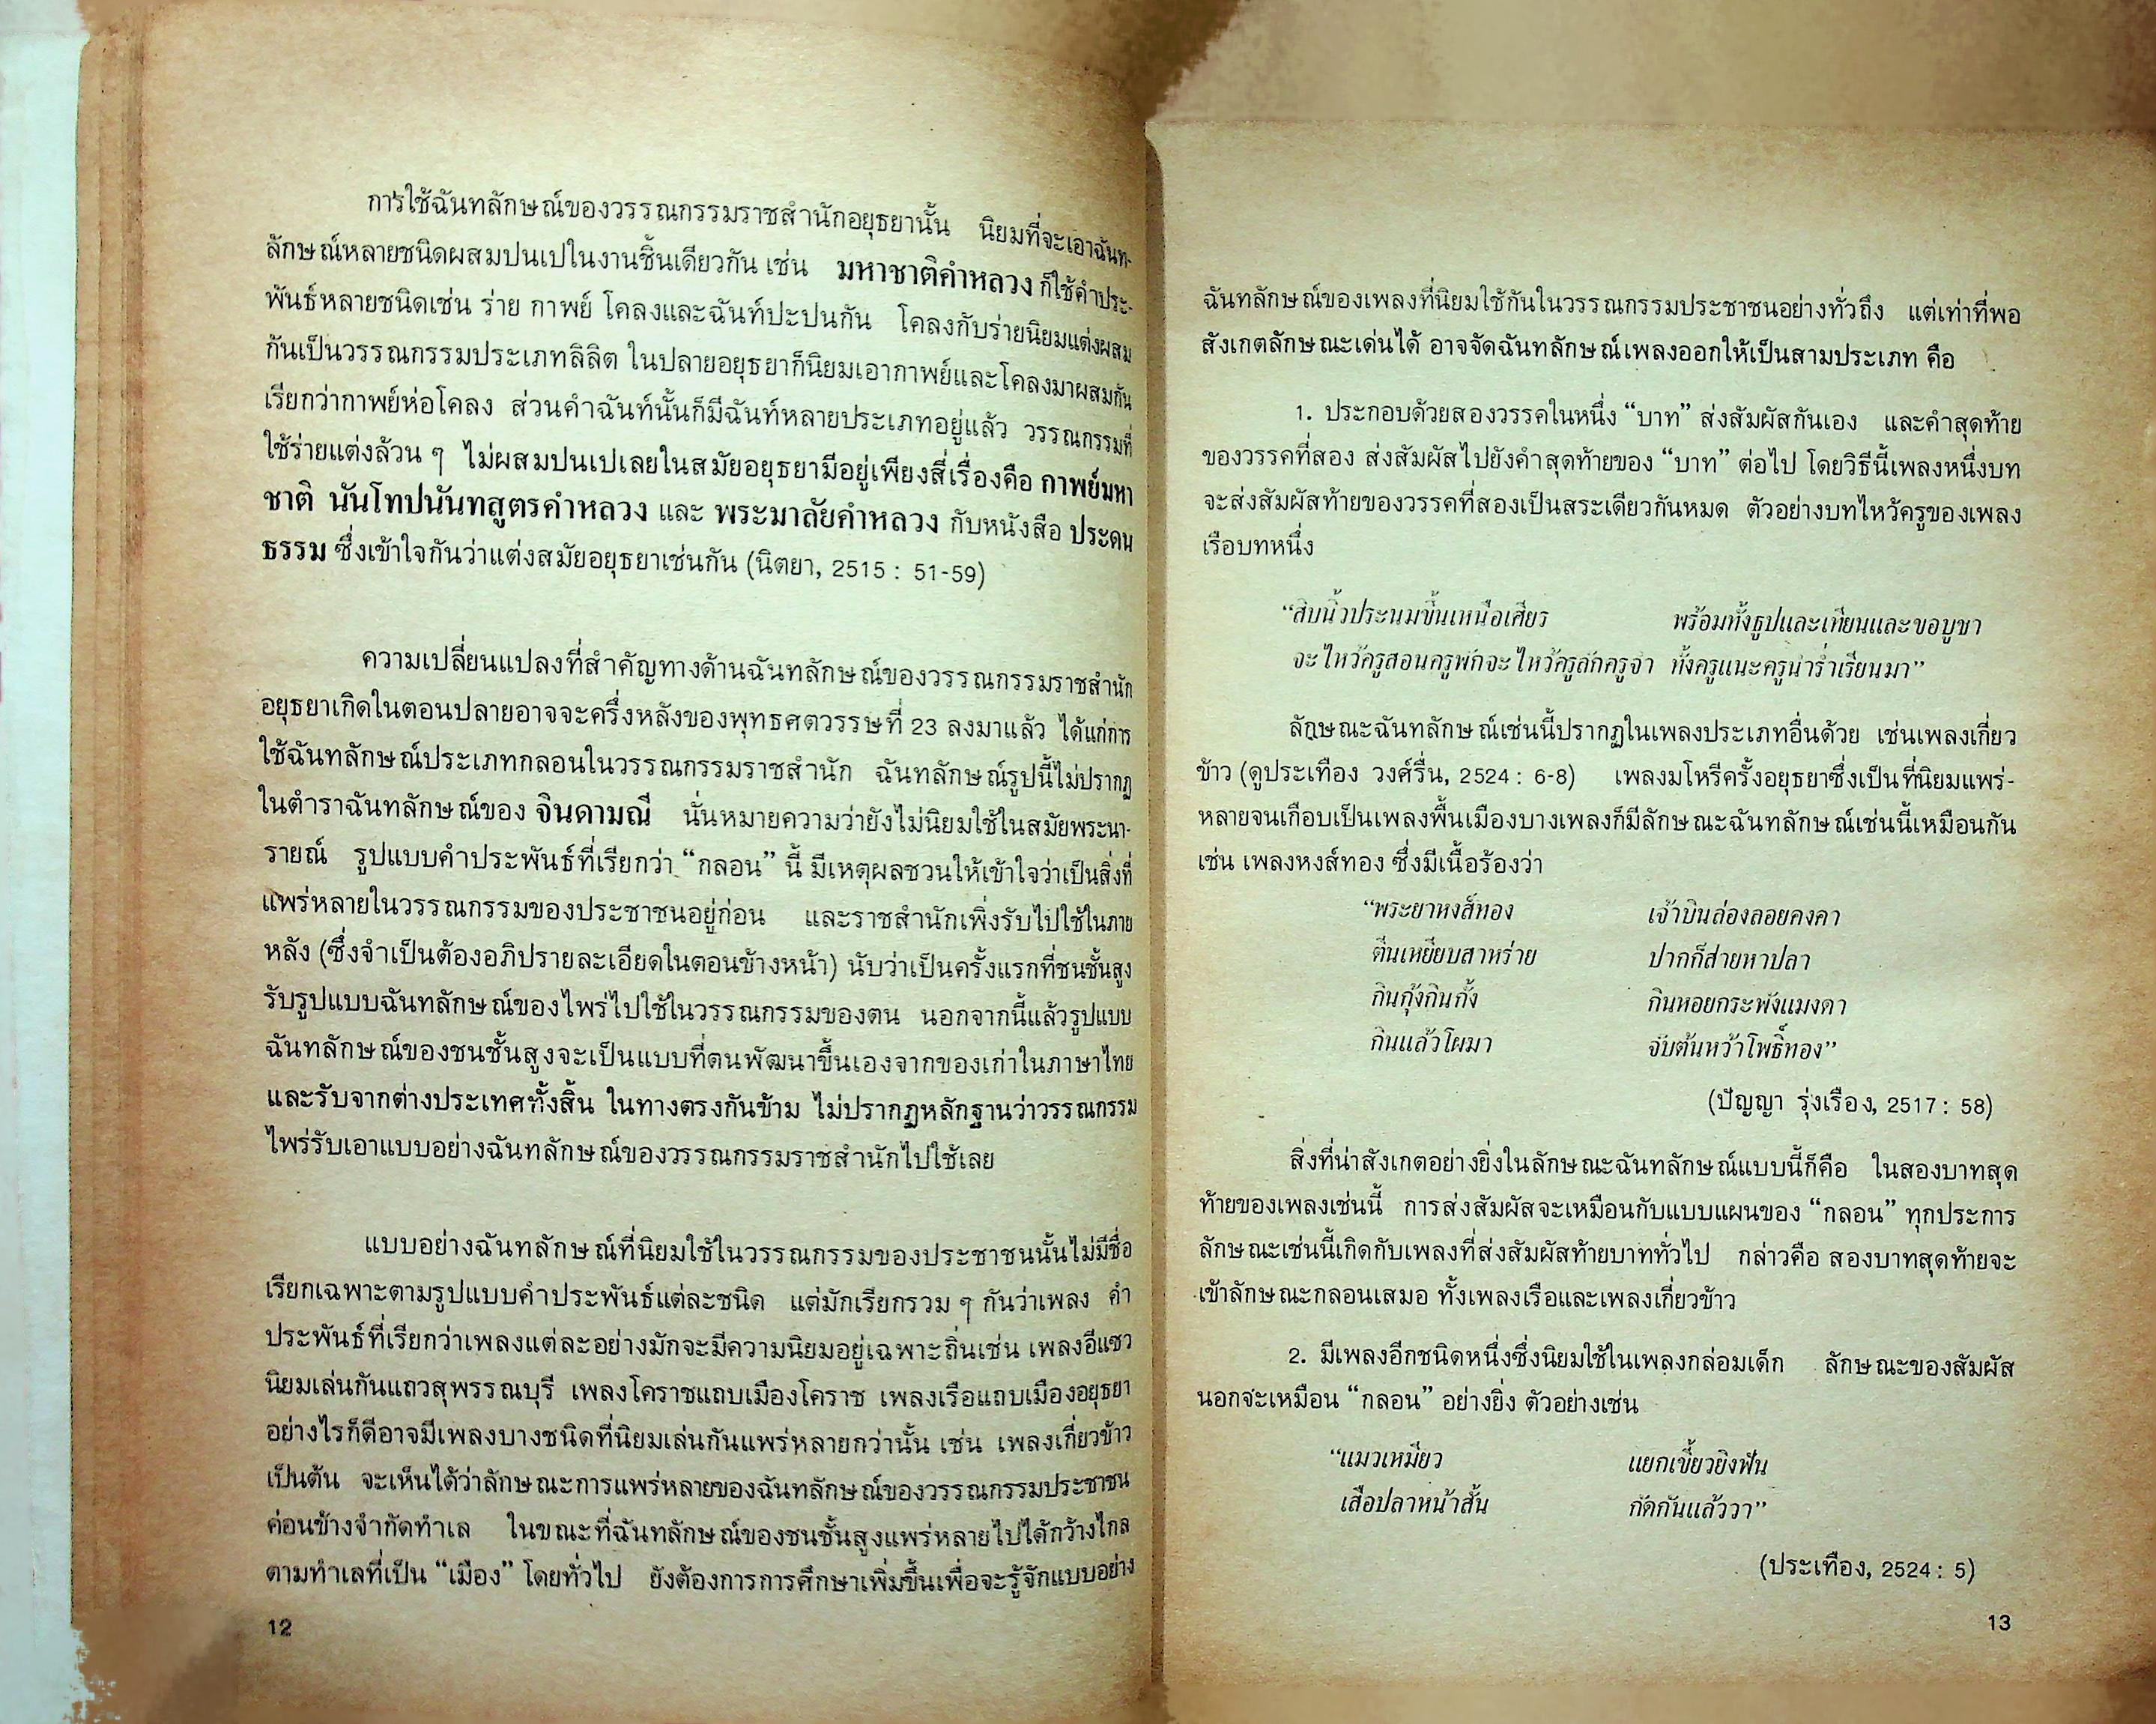 การใช้ฉันทลักษณ์ของวรรณกรรมราชสำนักอยุธยานั้น นิยมที่จะเอาฉันท-
ลักษณ์หลายชนิดผสมปนเปในงานชิ้นเดียวกัน เช่น มหาชาติคำหลวง ก็ใช้คำประ-
พันธ์หลายชนิดเช่น ร่าย กาพย์ โคลงและฉันท์ปะปนกัน โคลงกับร่ายนิยมแต่งผสม
กันเป็นวรรณกรรมประเภทลิลิต ในปลายอยุธยาก็นิยมเอากาพย์และโคลงมาผสมกัน
เรียกว่ากาพย์ห่อโคลง ส่วนคำฉันท์นั้นก็มีฉันท์หลายประเภทอยู่แล้ว วรรณกรรมที่
ใช้ร่ายแต่งล้วน ๆ ไม่ผสมปนเปเลยในสมัยอยุธยามีอยู่เพียงสี่เรื่องคือ กาพย์มหา
ชาติ นันโทปนันทสูตรคำหลวง และ พระมาลัยคำหลวง กับหนังสือ ประดน
ธรรม ซึ่งเข้าใจกันว่าแต่งสมัยอยุธยาเช่นกัน (นิตยา, 2515 : 51-59)
ความเปลี่ยนแปลงที่สำคัญทางด้านฉันทลักษณ์ของวรรณกรรมราชสำนัก
อยุธยาเกิดในตอนปลายอาจจะครึ่งหลังของพุทธศตวรรษที่ 23 ลงมาแล้ว ได้แก่การ
ใช้ฉันทลักษณ์ประเภทกลอนในวรรณกรรมราชสำนัก ฉันทลักษณ์รูปนี้ไม่ปรากฏ
ในตำราฉันทลักษณ์ของ จินดามณี นั่นหมายความว่ายังไม่นิยมใช้ในสมัยพระนา-
รายณ์ รูปแบบคำประพันธ์ที่เรียกว่า “กลอน” นี้ มีเหตุผลชวนให้เข้าใจว่าเป็นสิ่งที่
แพร่หลายในวรรณกรรมของประชาชนอยู่ก่อน และราชสำนักเพิ่งรับไปใช้ในภาย
หลัง (ซึ่งจำเป็นต้องอภิปรายละเอียดในตอนข้างหน้า) นับว่าเป็นครั้งแรกที่ชนชั้นสูง
รับรูปแบบฉันทลักษณ์ของไพร่ไปใช้ในวรรณกรรมของตน นอกจากนี้แล้วรูปแบบ
ฉันทลักษณ์ของชนชั้นสูงจะเป็นแบบที่ตนพัฒนาขึ้นเองจากของเก่าในภาษาไทย
และรับจากต่างประเทศทั้งสิ้น ในทางตรงกันข้าม ไม่ปรากฏหลักฐานว่าวรรณกรรม
ไพร่รับเอาแบบอย่างฉันทลักษณ์ของวรรณกรรมราชสำนักไปใช้เลย
แบบอย่างฉันทลักษณ์ที่นิยมใช้ในวรรณกรรมของประชาชนนั้นไม่มีชื่อ
เรียกเฉพาะตามรูปแบบคำประพันธ์แต่ละชนิด แต่มักเรียกรวม ๆ กันว่าเพลง คำ
ประพันธ์ที่เรียกว่าเพลงแต่ละอย่างมักจะมีความนิยมอยู่เฉพาะถิ่นเช่น เพลงอีแซว
นิยมเล่นกันแถวสุพรรณบุรี เพลงโคราชแถบเมืองโคราช เพลงเรือแถบเมืองอยุธยา
อย่างไรก็ดีอาจมีเพลงบางชนิดที่นิยมเล่นกันแพร่หลายกว่านั้น เช่น เพลงเกี่ยวข้าว
เป็นต้น จะเห็นได้ว่าลักษณะการแพร่หลายของฉันทลักษณ์ของวรรณกรรมประชาชน
ค่อนข้างจำกัดทำเล ในขณะที่ฉันทลักษณ์ของชนชั้นสูงแพร่หลายไปได้กว้างไกล
ตามทำเลที่เป็น “เมือง” โดยทั่วไป ยังต้องการการศึกษาเพิ่มขึ้นเพื่อจะรู้จักแบบอย่าง
12
ฉันทลักษณ์ของเพลงที่นิยมใช้กันในวรรณกรรมประชาชนอย่างทั่วถึง แต่เท่าที่พอ
สังเกตลักษณะเด่นได้ อาจจัดฉันทลักษณ์เพลงออกให้เป็นสามประเภท คือ
1. ประกอบด้วยสองวรรคในหนึ่ง “บาท” ส่งสัมผัสกันเอง และคำสุดท้าย
ของวรรคที่สอง ส่งสัมผัสไปยังคำสุดท้ายของ “บาท” ต่อไป โดยวิธีนี้เพลงหนึ่งบท
จะส่งสัมผัสท้ายของวรรคที่สองเป็นสระเดียวกันหมด ตัวอย่างบทไหว้ครูของเพลง
เรือบทหนึ่ง
“สิบนิ้วประนมขึ้นเหนือเศียร พร้อมทั้งธูปและเทียนและขอบูชา
จะไหว้ครูสอนครูพักจะไหว้ครูลักครูจำ ทั้งครูแนะครูนำร่ำเรียนมา”
ลักษณะฉันทลักษณ์เช่นนี้ปรากฏในเพลงประเภทอื่นด้วย เช่นเพลงเกี่ยว
ข้าว (ดูประเทือง วงศ์รื่น, 2524 : 6-8) เพลงมโหรีครั้งอยุธยาซึ่งเป็นที่นิยมแพร่-
หลายจนเกือบเป็นเพลงพื้นเมืองบางเพลงก็มีลักษณะฉันทลักษณ์เช่นนี้เหมือนกัน
เช่น เพลงหงส์ทอง ซึ่งมีเนื้อร้องว่า
“พระยาหงส์ทอง เจ้าบินล่องลอยคงคา
ตีนเหยียบสาหร่าย ปากก็ส่ายหาปลา
กินกุ้งกินกั้ง กินหอยกระพังแมงดา
กินแล้วโผมา จับต้นหว้าโพธิ์ทอง”
(ปัญญา รุ่งเรือง, 2517 : 58)
สิ่งที่น่าสังเกตอย่างยิ่งในลักษณะฉันทลักษณ์แบบนี้ก็คือ ในสองบาทสุด
ท้ายของเพลงเช่นนี้ การส่งสัมผัสจะเหมือนกับแบบแผนของ “กลอน” ทุกประการ
ลักษณะเช่นนี้เกิดกับเพลงที่ส่งสัมผัสท้ายบาททั่วไป กล่าวคือ สองบาทสุดท้ายจะ
เข้าลักษณะกลอนเสมอ ทั้งเพลงเรือและเพลงเกี่ยวข้าว
2. มีเพลงอีกชนิดหนึ่งซึ่งนิยมใช้ในเพลงกล่อมเด็ก ลักษณะของสัมผัส
นอกจะเหมือน “กลอน” อย่างยิ่ง ตัวอย่างเช่น
“แมวเหมียว แยกเขี้ยวยิงฟัน
เสือปลาหน้าสั้น กัดกันแล้ววา”
(ประเทือง, 2524 : 5)
13